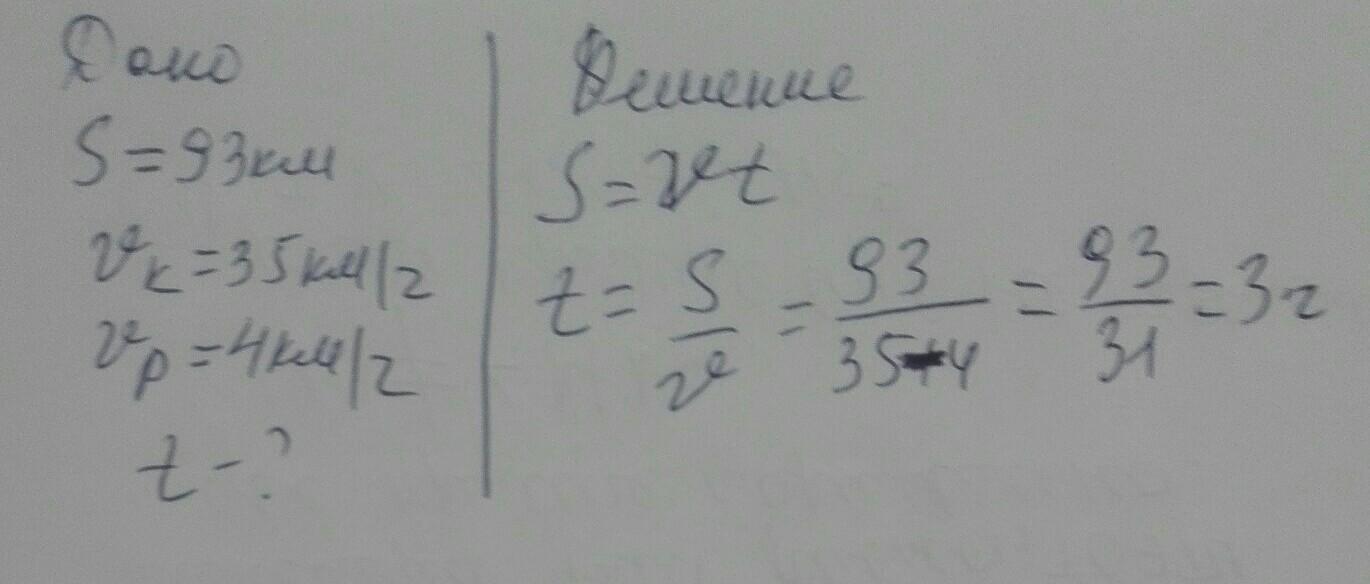 Дано
S = 93км
υк = 35км/г
υр = 4км/г
t - ?
Решение
S = υt
t = S/υ = 93/35-4 = 93/31 = 3г